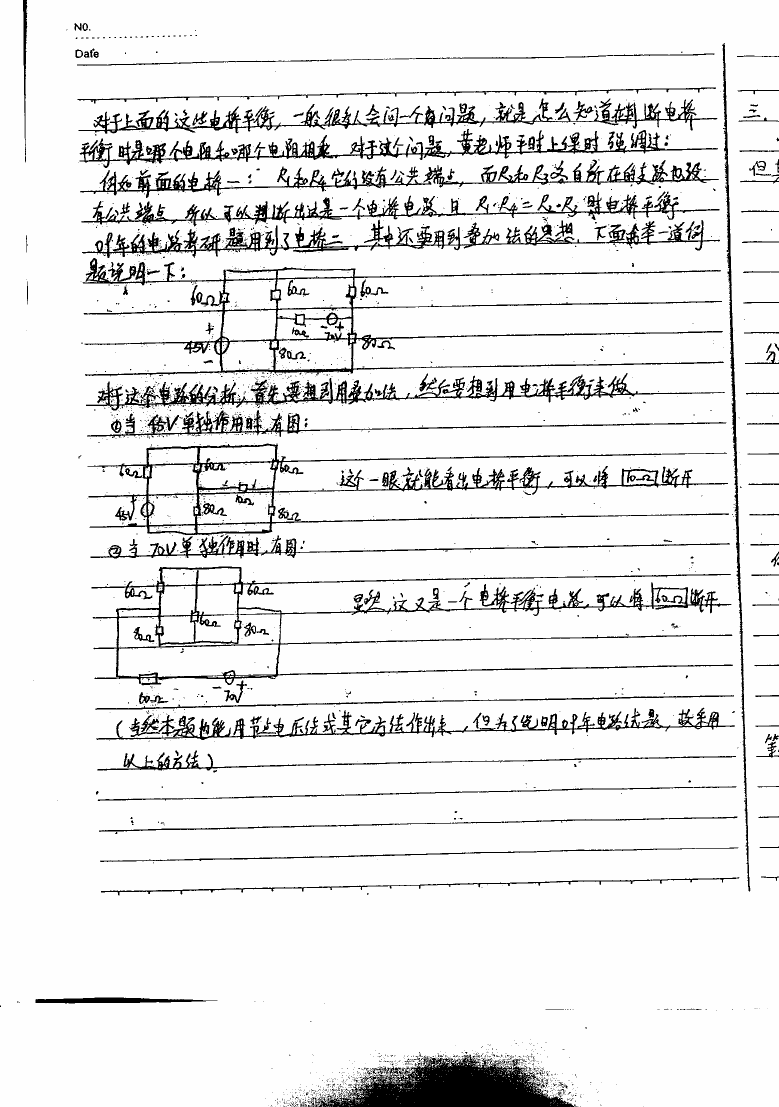 NO.
Date
对于上面的这些电桥平衡，一般很多人会问一个问题，就是怎么知道在判断电桥
平衡时是哪个电阻和哪个电阻相乘。对于这个问题，黄老师平时上课时强调过：
例如前面的电桥一： R₁和R₄它们没有公共端点，而R₂和R₃各自所在的支路也没
有公共端点，所以可以判断出这是一个电桥电路，且 R₁·R₄=R₂·R₃ 时电桥平衡
09年的电路考研题用到了电桥二，其中还要用到叠加法的思想。下面举一道例
题说明一下：
60Ω 60Ω 60Ω
45V 80Ω 10Ω 70V 80Ω
对于这个电路的分析，首先要想到用叠加法，然后要想到用电桥平衡来做。
①当 45V 单独作用时，有图：
60Ω 60Ω 60Ω
45V 80Ω 10Ω 80Ω
这个一眼就能看出电桥平衡，可以将 10Ω 断开
②当 70V 单独作用时，有图：
60Ω 60Ω
80Ω 60Ω 80Ω
60Ω 70V
显然，这又是一个电桥平衡电路，可以将 60Ω 断开.
（当然本题也能用节点电压法或其它方法作出来，但为了说明09年电路试题，故采用
以上的方法）
三.
但
分
第